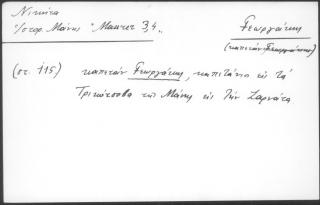 Νικήτα
"Ιστορ. Μάνης" Maurer 3,4..
Γεωργάκης
(καπετάν Γεωργάκης)
(στ. 115) καπετάν Γεωργάκης, καπιτάνιο εις τα
Τρικότσοβα της Μάνης εις την Ζαρνάτα